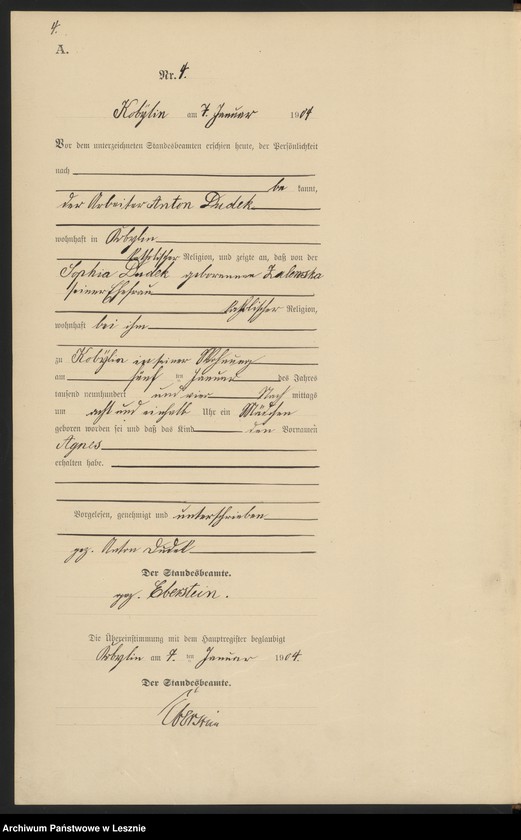 4.
A.
Nr. 4.
Kobylin am 7. Januar 1904
Vor dem unterzeichneten Standesbeamten erschien heute, der Persönlichkeit
nach
be kannt,
der Arbeiter Anton Dudek
wohnhaft in Kobylin
katholischer Religion, und zeigte an, daß von der
Sophia Dudek geborenen Zalewska
seiner Ehefrau
katholischer Religion,
wohnhaft bei ihm
zu Kobylin in seiner Wohnung
am fünf ten Januar des Jahres
tausend neunhundert und vier Nach mittags
um acht und einhalb Uhr ein Mädchen
geboren worden sei und daß das Kind den Vornamen
Agnes
erhalten habe.
Vorgelesen, genehmigt und unterschrieben
gez. Anton Dudek
Der Standesbeamte.
gez. Eberstein.
Die Übereinstimmung mit dem Hauptregister beglaubigt
Kobylin am 7. ten Januar 1904.
Der Standesbeamte.
Eberstein
Archiwum Państwowe w Lesznie